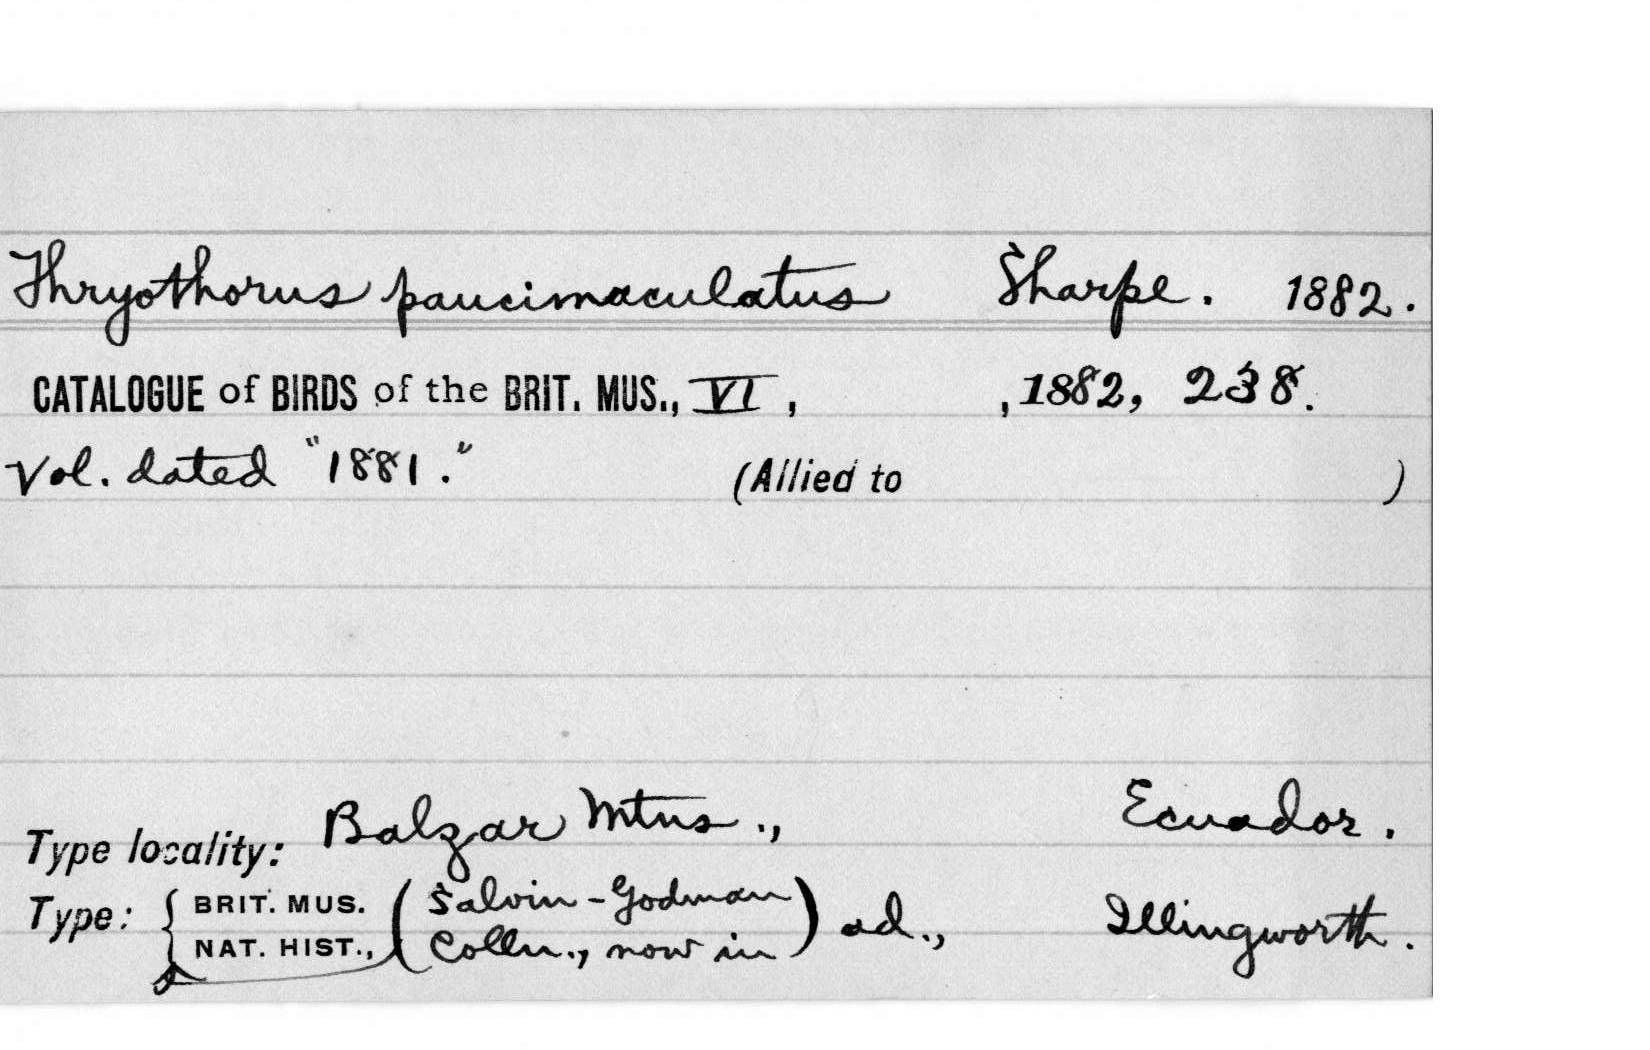 Thryothorus paucimaculatus Sharpe. 1882.
CATALOGUE of BIRDS of the BRIT. MUS., VI, , 1882, 238.
Vol. dated "1881." (Allied to )
Type locality: Balzar Mtns., Ecuador.
Type: { BRIT. MUS. NAT. HIST., (Salvin-Godman Colln., now in) ad., Illingworth.